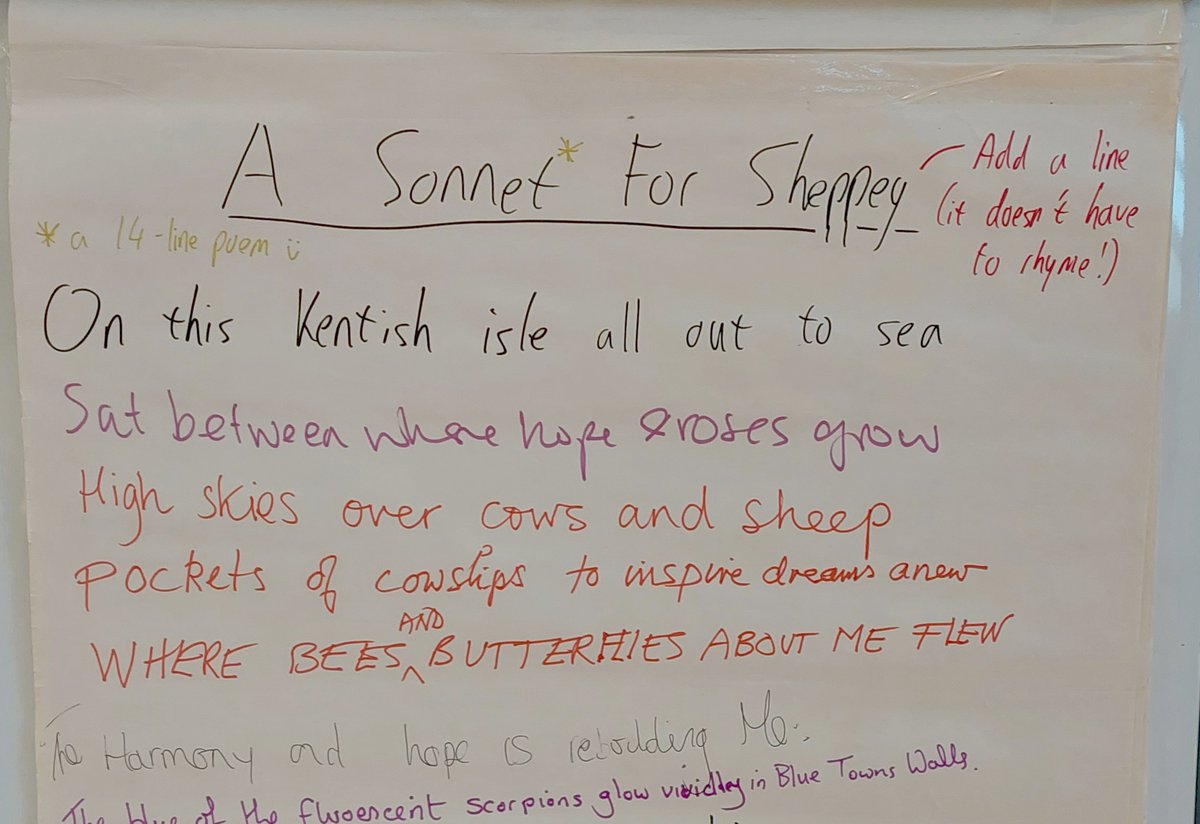 A Sonnet* For Sheppey
Add a line
(it doesn't have
to rhyme!)
* a 14-line poem
On this Kentish isle all out to sea
Sat between where hope & roses grow
High skies over cows and sheep
pockets of cowslips to inspire dreams anew
WHERE BEES AND BUTTERFLIES ABOUT ME FLEW
The Harmony and hope is rebuilding Me.
The blue of the fluoescent scorpions glow vividley in Blue Towns Walls.